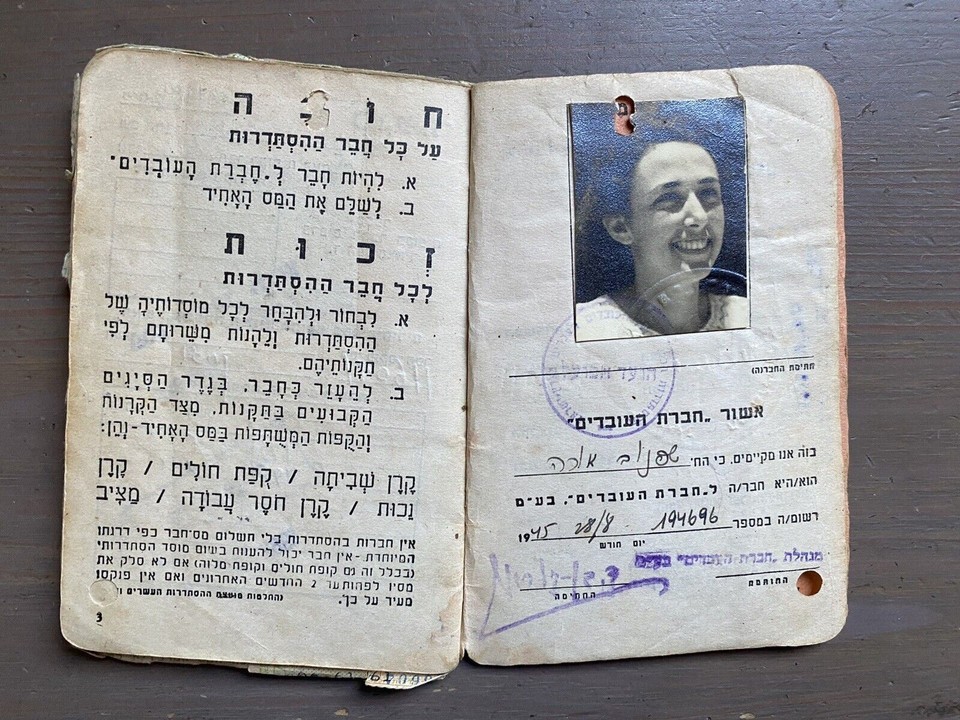 חוֹבָה
עַל כָּל חֲבֵר הַהִסְתַּדְּרוּת
א. לִהְיוֹת חָבֵר לְ„חֶבְרַת הָעוֹבְדִים"
ב. לְשַׁלֵּם אֶת הַמַּס הָאָחִיד
זְכוּת
לְכָל חֲבֵר הַהִסְתַּדְּרוּת
א. לִבְחוֹר וּלְהִבָּחֵר לְכָל מוֹסְדוֹתֶיהָ שֶׁל
הַהִסְתַּדְּרוּת וְלֵהָנוֹת מִשֵּׁרוּתָם לְפִי
תַקָּנוֹתֵיהֶם.
ב. לְהֵעָזֵר כְּחָבֵר, בְּגֶדֶר הַסְּיָגִים
הַקְּבוּעִים בַּתַּקָּנוֹת, מִצַּד הַקְּרָנוֹת
וְהַקֻּפּוֹת הַמְּשֻׁתָּפוֹת בַּמַּס הָאָחִיד-וְהֵן:
קֶרֶן שְׁבִיתָה / קֻפַּת חוֹלִים / קֶרֶן
נָכוּת / קֶרֶן חֹסֶר עֲבוֹדָה / מַצִּיב
אין חברות בהסתדרות בלי תשלום מס־חבר כפי דרגתו
המיוחדת - אין חבר יכול להענות בשום מוסד הסתדרותי
(בכלל זה גם קופת חולים וקופת מלוה) אם לא סלק את
מסיו לפחות עד 2 החדשים האחרונים ואם אין פנקסו
מעיר על כך. (החלטות מועצת ההסתדרות העשרים
3
הועד הפועל
חתימת החבר/ה)
אשור „חברת העובדים"
בזה אנו מקיימים, כי הח' שפנוב אורה
הוא/היא חבר/ה ל„חברת העובדים", בע"ם
רשום/ה במספר 194696 28/8 1945
יום חודש
מנהלת "חברת העובדים" בע"מ
החותמת החתימה